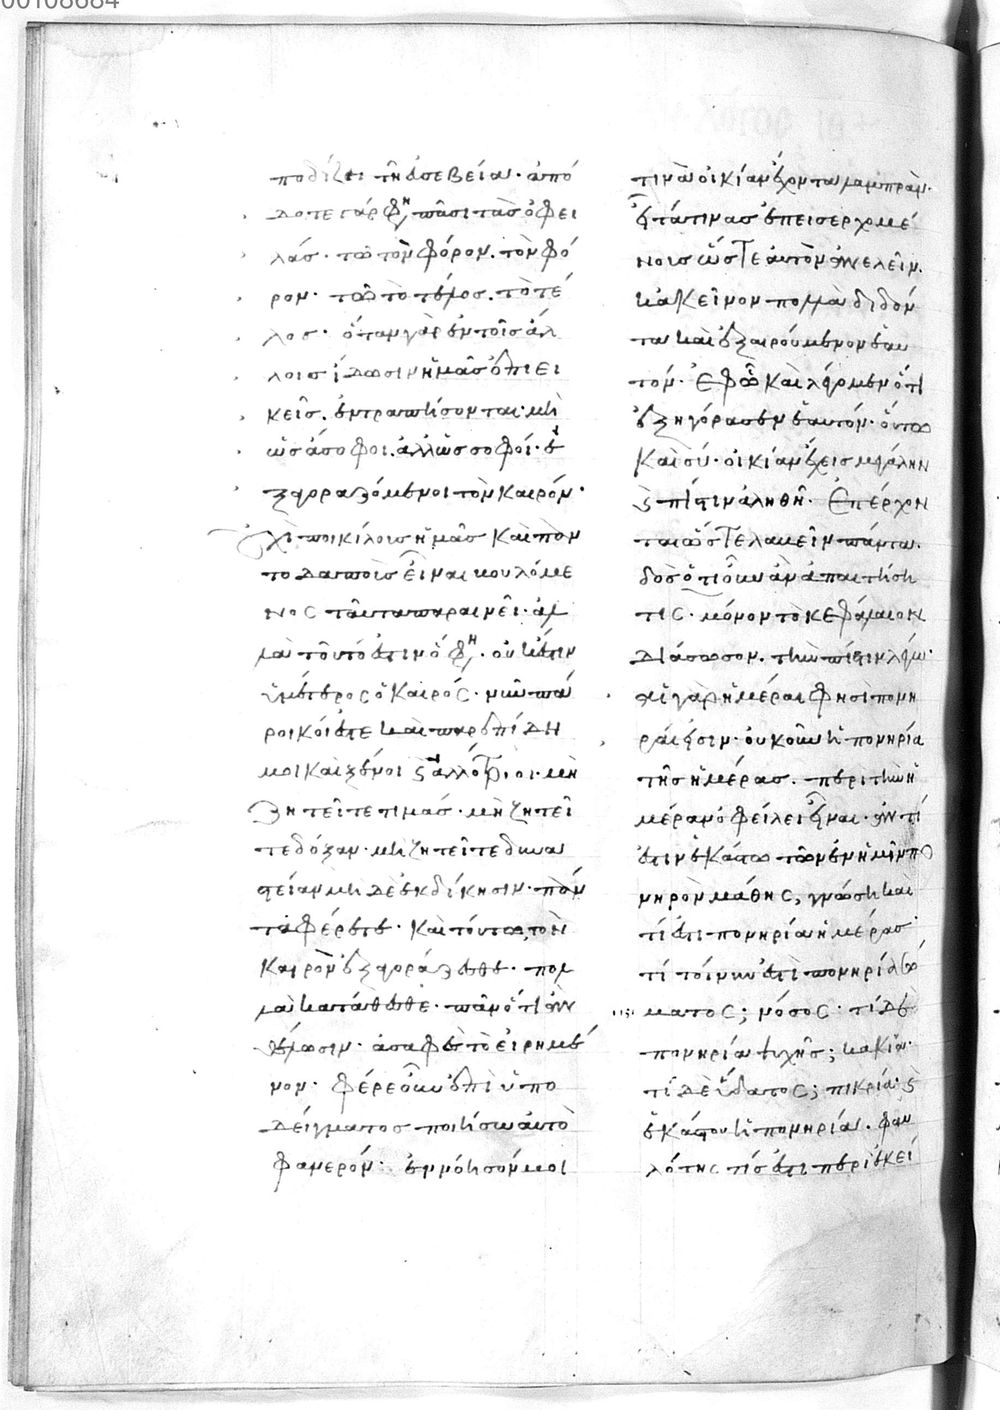 00108684
ποδίζει τῆ ἀσεβεία· ἀπό
δοτε γάρ φη πᾶσι τὰς ὀφει
λάς· τῶ τὸν φόρον. τὸν φό
ρον· τῶ τὸ τέλος. τὸ τέ
λος· ὅταν γὰρ ἐν τοῖς ἀλ
λοις ἴδωσιν ἡμᾶς ἐπιει
κεῖς. ἐντραπήσονται· μὴ
ὡς ἄσοφοι. ἀλλ' ὡς σοφοί· ἐ
ξαγοραζόμενοι τὸν καιρόν·
Οὐχὶ ποικίλους ἡμᾶς καὶ παν
τοδαποὺς εἶναι βουλόμε
νος ταῦτα παραινεῖ· ἀλ
λὰ τοῦτό ἐστιν ὅ φη· οὐκ ἔστιν
ὑμέτερος ὁ καιρός· νῦν πά
ροικοί ἐστε καὶ παρεπίδη
μοι καὶ ξένοι ϗ ἀλλότριοι· μὴ
ζητεῖτε τιμάς· μὴ ζητεῖ
τε δόξαν· μὴ ζητεῖτε δυνα
στείαν μὴ δὲ ἐκδίκησιν· πάν
τα φέρετε· καὶ τούτω τὸν
καιρὸν ἐξαγοράζεσθε· πολ
λὰ κατάθεσθε· πᾶν ὅτι ἂν
θέλωσιν· ἀσαφὲς τὸ εἰρημέ
νον· φέρε οὖν ἐπὶ ὑπο
δείγματος ποιήσω αὐτὸ
φανερόν· ἐννόησόν μοι
τινὰ οἰκίαν ἔχοντα λαμπράν·
εἶτά τινας ἐπεισερχομέ
νους ὥστε αὐτὸν ἀνελεῖν.
κἀκεῖνον πολλὰ διδόν
τα καὶ ἐξαιρούμενον ἑαυ
τόν· Ἐφ' ὧ καὶ λέγομεν ὅτι
ἐξηγόρασεν ἑαυτόν· οὕτω
καὶ σύ· οἰκίαν ἔχεις μεγάλην
ϗ πίστιν ἀληθῆ· Ἐπέρχον
ται ὥστε λαβεῖν πάντα.
δὸς ὅτι οὖν ἂν ἀπαιτήση
τις· μόνον τὸ κεφάλαιον
διάσωσον. τὴν πίστιν λέγω·
αἱ γὰρ ἡμέραι φησὶ πονη
ραί εἰσιν· οὐκοῦν ἡ πονηρία
τῆς ἡμέρας. περὶ τὴν ἡ
μέραν ὀφείλει εἶναι· ἂν τί
ἐστιν ἑκάστω τῶν ἐν ἡμῖν πο
νηρὸν μάθης, γνώση καὶ
τί ἐστι πονηρία ἡμέρας·
τί τοίνυν ἐστὶ πονηρία σώ
ματος; νόσος· τί δὲ
πονηρία ψυχῆς; κακία·
τί δὲ ὕδατος; πικρία· ϗ
ἑκάστου ἡ πονηρία. φαυ
λότης τίς ἐστι περὶ ἐκεί